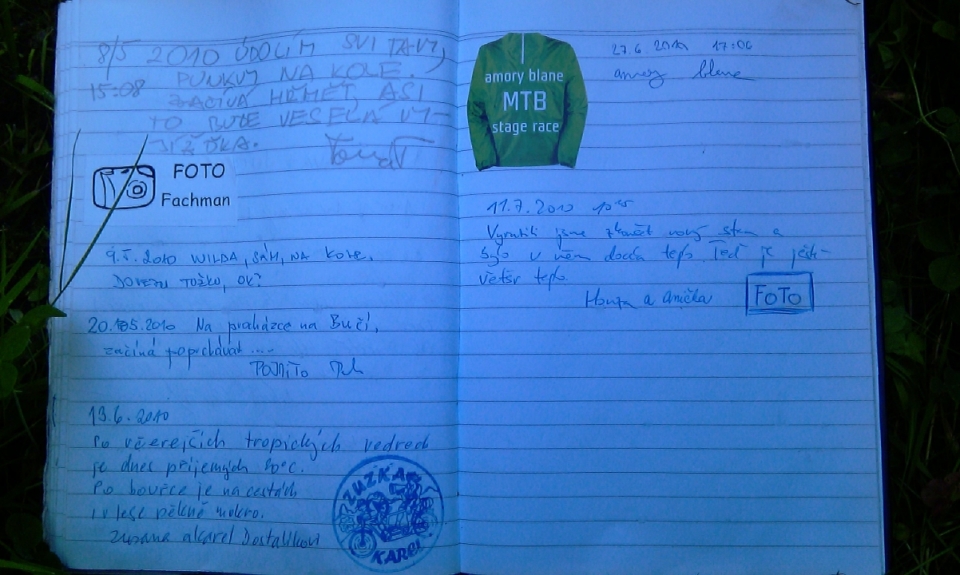 8/5 2010 ÚDOLÍM SVITAVY,
15:08 PUNKVY NA KOLE.
ZAČÍNÁ HŘMĚT, ASI
TO BUDE VESELÁ VY-
JÍŽĎKA.
FOTO
Fachman
9.5.2010 WILDA, SÁM, NA KOLE,
DOVEZU TOŽKO, OK?
20.05.2010 Na procházce na Bučí,
začíná poprchávat ...
POJĎITO
13.6.2010
Po včerejších tropických vedrech
je dnes příjemných 20°C.
Po bouřce je na cestách
i v lese pěkně mokro.
Zuzana a Karel Dostálkovi
ZUZKA
KAREL
amory blane
MTB
stage race
27.6.2010 17:06
amory blane
11.7.2010
Vyrazili jsme zkoušet nový stan a
bylo v něm docela teplo. Teď je ješt-
větší teplo.
Honza a Anička
FOTO